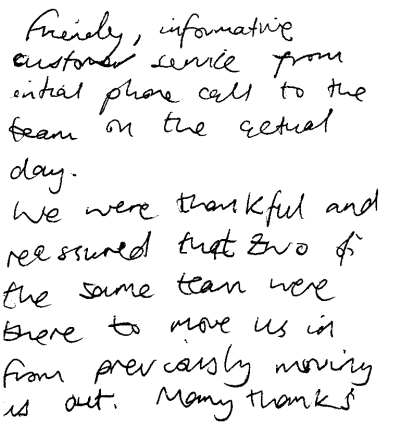 Friendly, informative
customer service from
initial phone call to the
team on the actual
day.
We were thankful and
reassured that two of
the same team were
there to move us in
from previously moving
us out. Many thanks